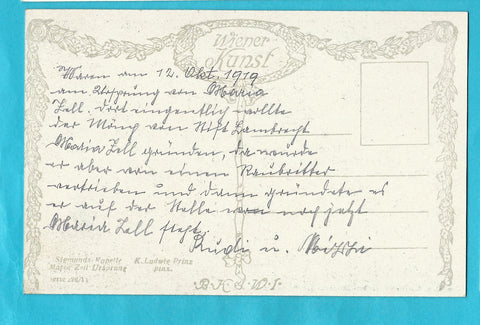 Wiener
Kunst
Waren am 12. Okt. 1919
am Ursprung von Maria
Zell. Dort eingentlich wollte
der Mönch von Stift Lambrecht
Maria Zell gründen, da wurde
er aber von einem Raubritter
vertrieben und dann gründete es
er auf der Stelle wo noch jetzt
Maria Zell steht.
Rudi u. Mitzi
Sigmunds-Kapelle K. Ludwig Prinz
Maria Zell Ursprung pinx.
B.K.W.I.